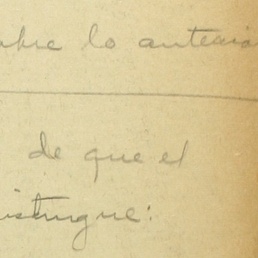 obre lo anterio
de que el
istingue: